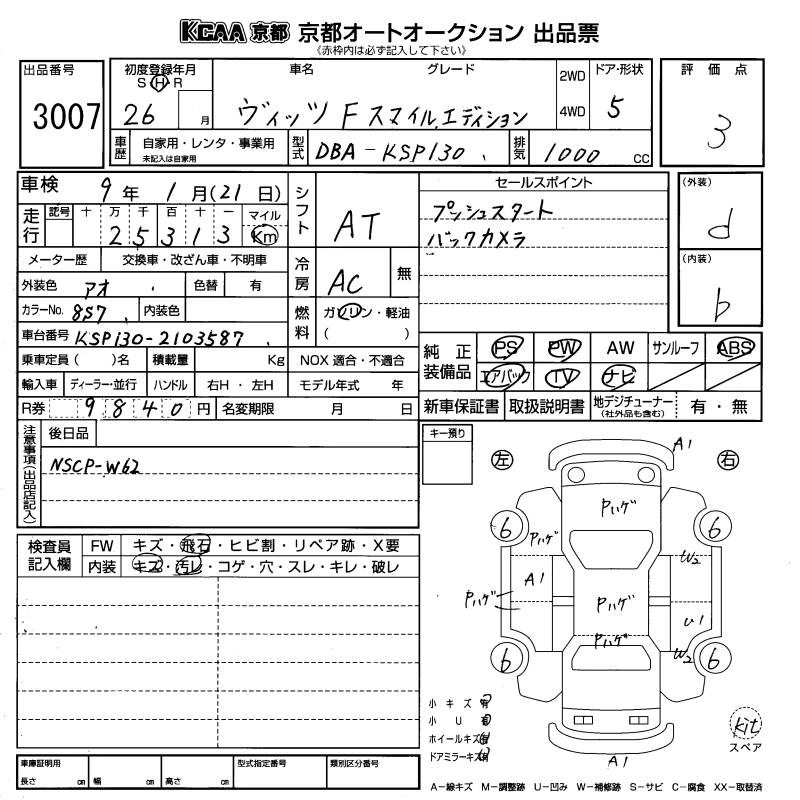 KCAA 京都 京都オートオークション 出品票
《赤枠内は必ず記入して下さい》
出品番号
3007
初度登録年月
S H R
26 月
車名 グレード
ヴィッツ F スマイルエディション
2WD
4WD
ドア・形状
5
評価点
3
車歴
自家用・レンタ・事業用
未記入は自家用
型式
DBA-KSP130
排気
1000 cc
車検 9年 1月(21日)
走行
記号 十 万 千 百 十 一 マイル
2 5 3 1 3 Km
メーター歴 交換車・改ざん車・不明車
外装色 アオ 色替 有
カラーNo. 8S7 内装色
車台番号 KSP130-2103587
乗車定員 ( )名 積載量 Kg
輸入車 ディーラー・並行 ハンドル 右H・左H
R券 9840円 名変期限 月 日
シフト AT
冷房 AC 無
燃料 ガソリン・軽油
( )
NOX 適合・不適合
モデル年式 年
セールスポイント
プッシュスタート
バックカメラ
(外装)
d
(内装)
b
純正装備品
PS PW AW サンルーフ ABS
エアバック TV ナビ
新車保証書 取扱説明書 地デジチューナー 有・無
(社外品も含む)
注意事項(出品店記入)
後日品
NSCP-W62
キー預り
検査員記入欄
FW キズ・飛石・ヒビ割・リペア跡・X要
内装 キズ・汚レ・コゲ・穴・スレ・キレ・破レ
左 右
A1
Pハゲ
6 6
Pハゲ
W2
A1
Pハゲ
Pハゲ
U1
Pハゲ
W2
6 6
A1
小キズ
小U
ホイールキズ
ドアミラーキズ
kit
スペア
車庫証明用
長さ cm 幅 cm 高さ cm
型式指定番号
類別区分番号
A-線キズ M-調整跡 U-凹み W-補修跡 S-サビ C-腐食 XX-取替済